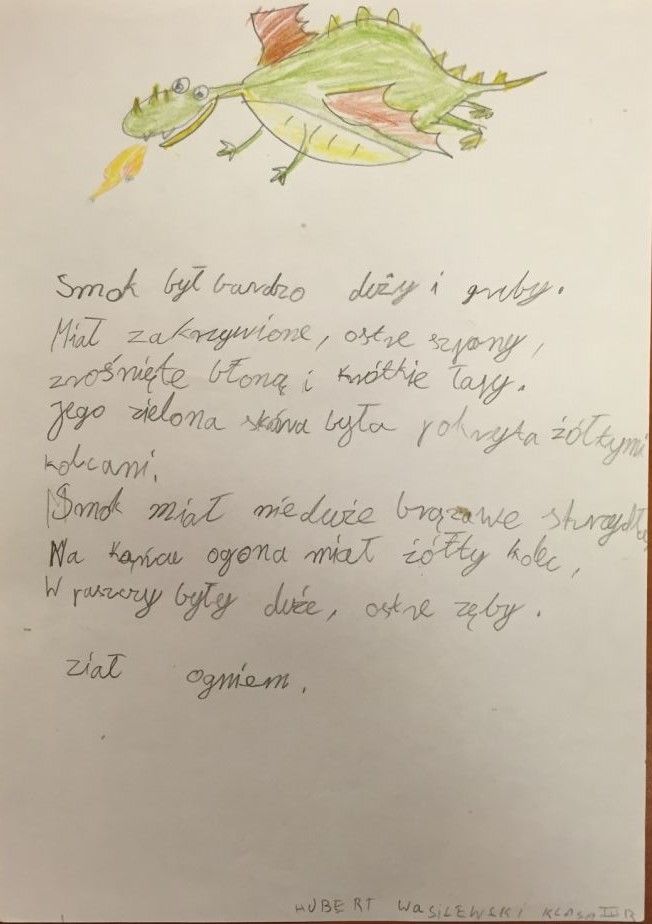 Smok był bardzo duży i gruby.
Miał zakrzywione, ostre szpony,
zrośnięte błoną i krótkie łapy.
Jego zielona skóra była pokryta żółtymi
kolcami.
Smok miał nieduże brązowe skrzydła
Na końcu ogona miał żółty kolec,
W paszczy były duże, ostre zęby.
ział ogniem.
HUBERT WASILEWSKI KLASA III B